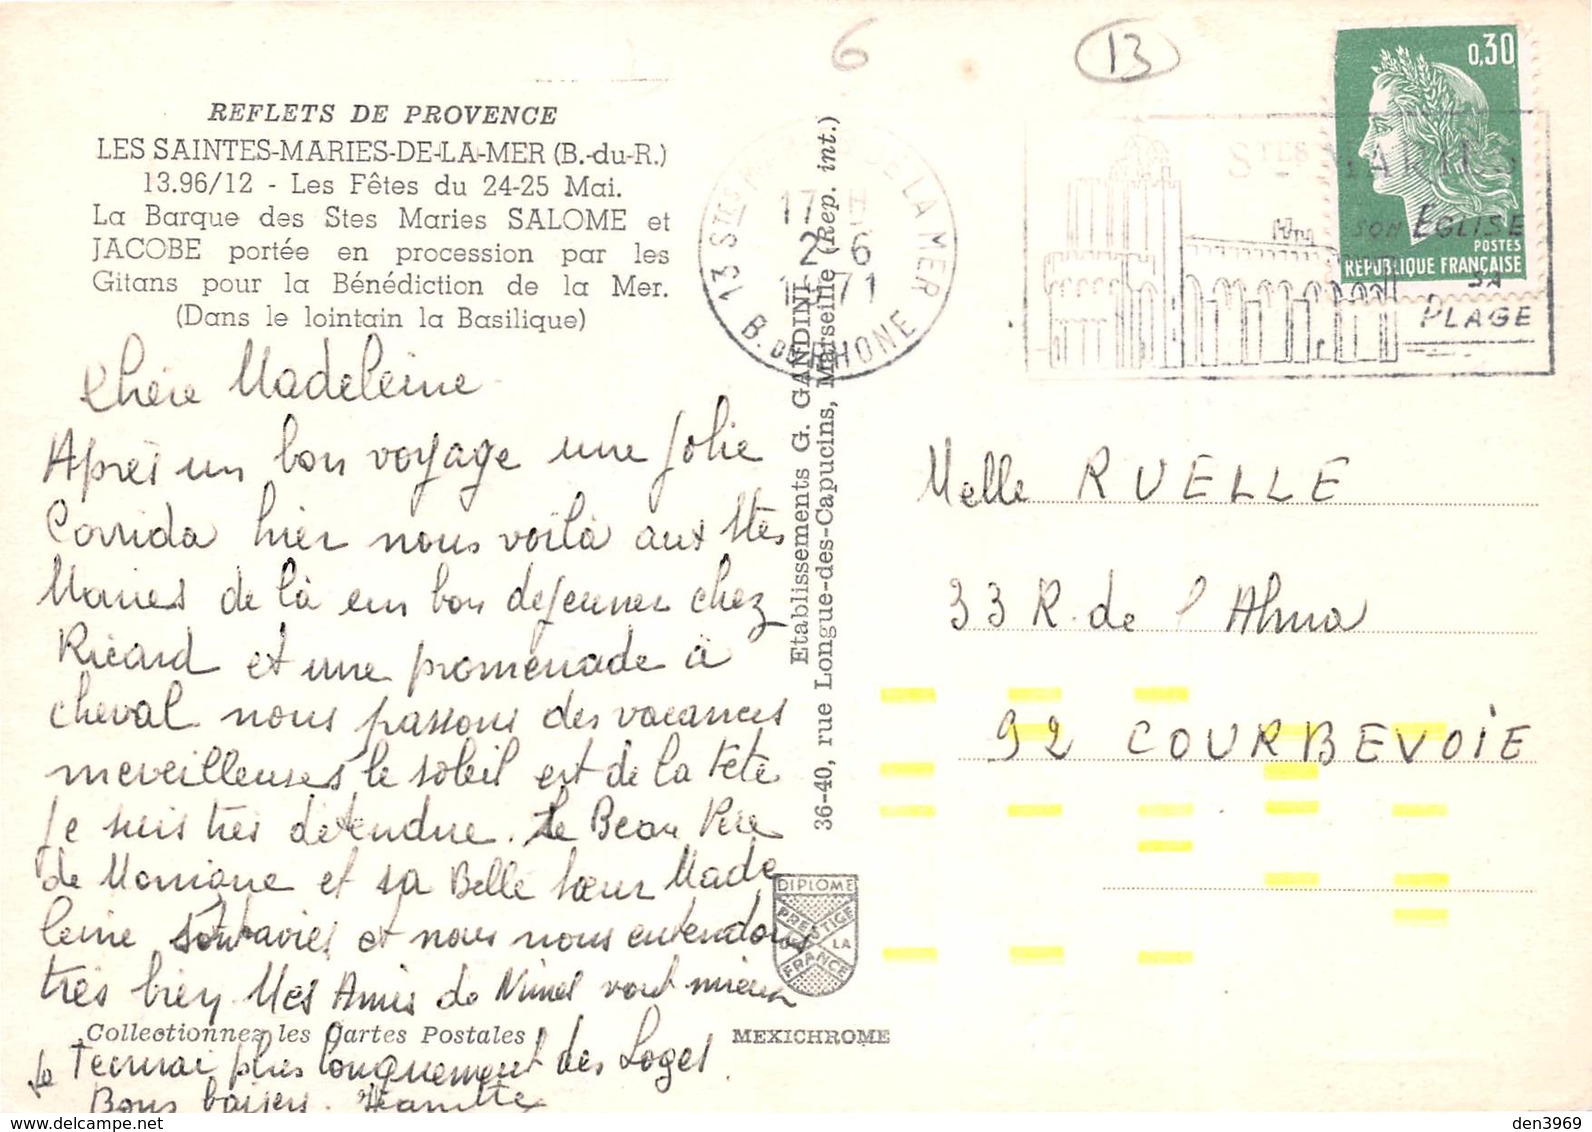 6
13
0,30
POSTES
REPUBLIQUE FRANÇAISE
REFLETS DE PROVENCE
LES SAINTES-MARIES-DE-LA-MER (B.-du-R.)
13.96/12 - Les Fêtes du 24-25 Mai.
La Barque des Stes Maries SALOME et
JACOBE portée en procession par les
Gitans pour la Bénédiction de la Mer.
(Dans le lointain la Basilique)
13 STES DE LA MER
17 H
2-6
1971
B. DU RHONE
STES MARIES
SON EGLISE
SA
PLAGE
Khère Madeleine
Après un bon voyage une jolie
Corrida hier nous voilà aux Stes
Maries de là un bon dejeuner chez
Ricard et une promenade à
cheval nous passons des vacances
merveilleuses le soleil est de la fete
je suis très detendue. Le Beau Père
de Monique et sa Belle soeur Made
leine sont ravies et nous nous entendons
très bien Mes Amis de Nimes vont mieux
Je t'ecrirai plus longuement des Loges
Bons baisers.
Etablissements G. GANDINI
36-40, rue Longue-des-Capucins, Marseille (Rep. int.)
DIPLOME
PRESTIGE
DE LA
FRANCE
Collectionnez les Cartes Postales
MEXICHROME
Melle RUELLE
33 R. de l'Alma
92 COURBEVOIE
den3969